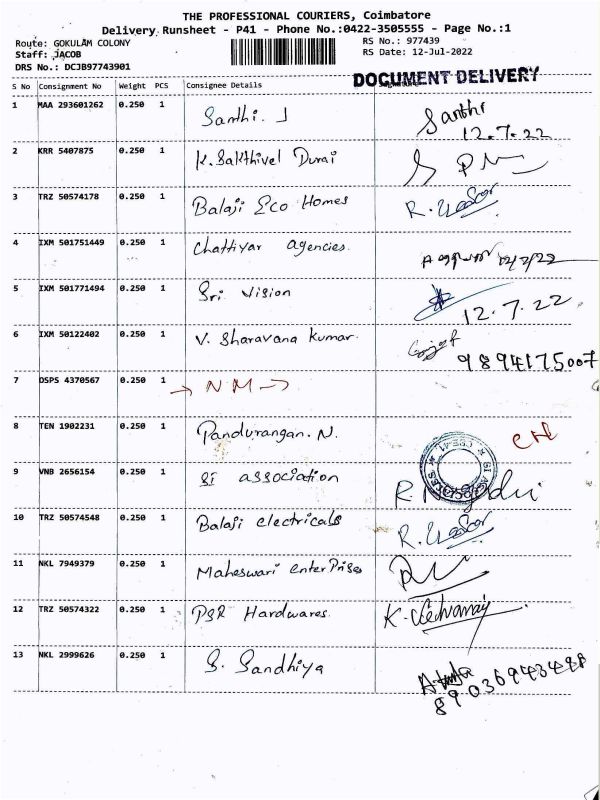 THE PROFESSIONAL COURIERS, Coimbatore
Delivery Runsheet - P41 - Phone No.:0422-3505555 - Page No.:1
Route: GOKULAM COLONY
RS No.: 977439
Staff: JACOB
RS Date: 12-Jul-2022
DRS No.: DCJB97743901
DOCUMENT DELIVERY
S No Consignment No Weight PCS Consignee Details
1 MAA 293601262 0.250 1 Santhi. J Santhi
12.7.22
2 KRR 5407875 0.250 1 K. Sakthivel Durai
3 TRZ 50574178 0.250 1 Balaji Eco Homes
4 IXM 501751449 0.250 1 Chattiyar agencies.
5 IXM 501771494 0.250 1 Sri Vision 12.7.22
6 IXM 50122402 0.250 1 V. Sharavana kumar. 9894175007
7 DSPS 4370567 0.250 1 NM
8 TEN 1902231 0.250 1 Pandurangan. N.
9 VNB 2656154 0.250 1 SI association
10 TRZ 50574548 0.250 1 Balaji electricals
11 NKL 7949379 0.250 1 Maheswari enterPrises
12 TRZ 50574322 0.250 1 PSR Hardwares.
13 NKL 2999626 0.250 1 S. Sandhiya